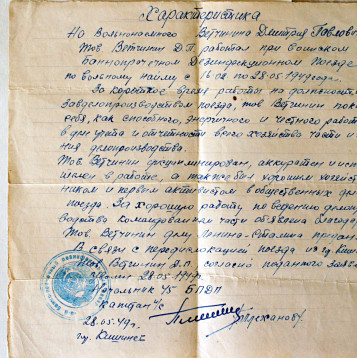 Характеристика
На Вольнонаёмного Ветчинина Дмитрия Павлов
Тов Ветчинин Д.П. работал при воинском
Баннопрачечном Дезинфекционном Поезде
по вольному найму с 16.02 по 28.05 1949 года.
За короткое время работы на должности
завделопроизводством поезда, тов Ветчинин пока
себя, как способного, энергичного и честного работ
в деле учета и отчетности всего хозяйства части и
ния делопроизводства.
Тов Ветчинин дисциплинирован, аккуратен и исп
в работе, а так же был хорошим
ником и первом активистом в общественных
поезда. За хорошую работу по ведению дело
водства командованием части объявлена благод
Тов Ветчинин делу Ленина-Сталина предан
В связи с передислокацией поезда из гор. Киши
тов Ветчинин Д.П. согласно поданного заяв
28.05.49г.
Начальник ЧБ БПДП
капитан
28.05.49г.
гр. Кишинев